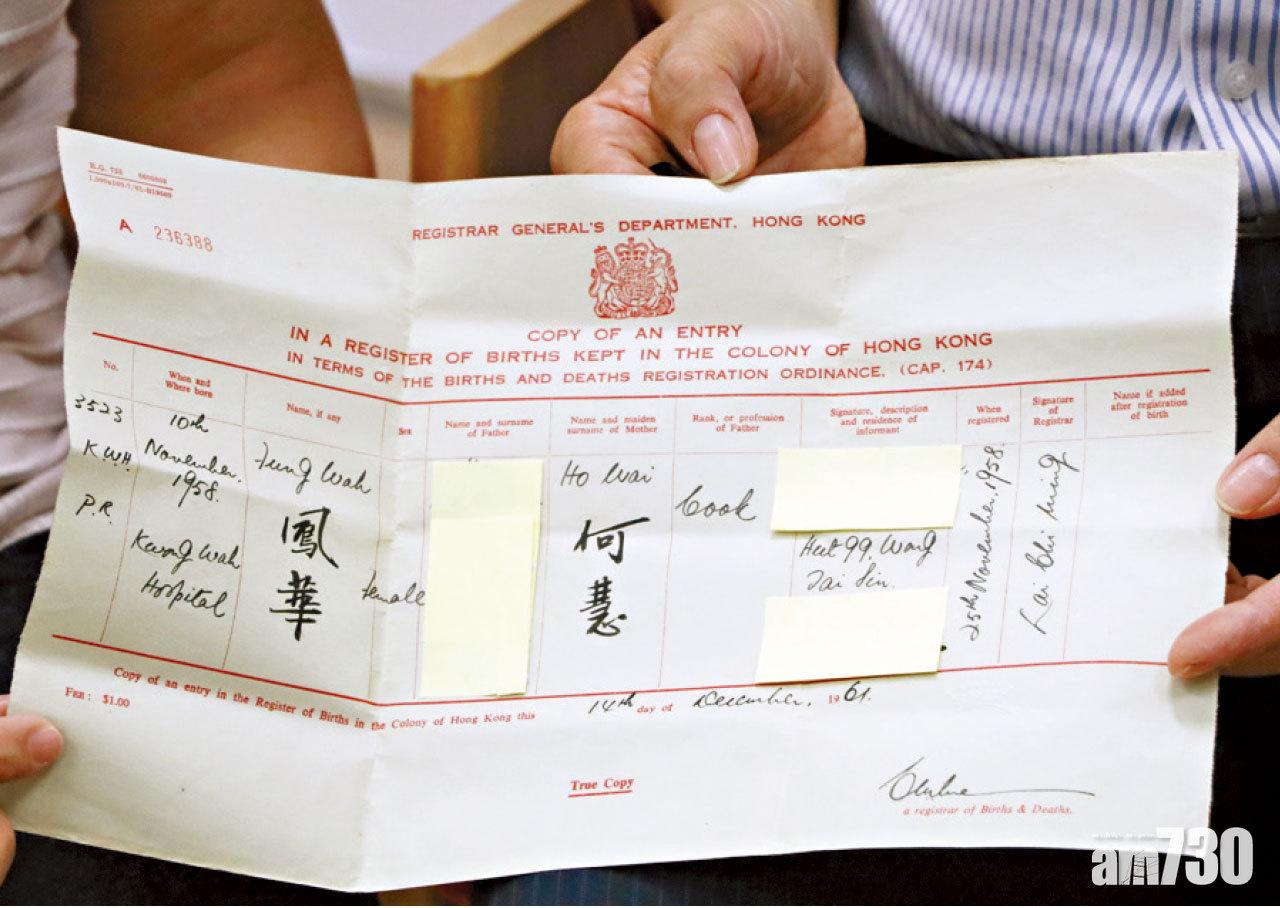 R.G. 732
A 236388
REGISTRAR GENERAL'S DEPARTMENT. HONG KONG
COPY OF AN ENTRY
IN A REGISTER OF BIRTHS KEPT IN THE COLONY OF HONG KONG
IN TERMS OF THE BIRTHS AND DEATHS REGISTRATION ORDINANCE. (CAP. 174)
No.
When and
Where born
Name, if any
Sex
Name and surname
of Father
Name and maiden
surname of Mother
Rank, or profession
of Father
Signature, description
and residence of
informant
When
registered
Signature
of
Registrar
Name if added
after registration
of birth
3523
K.W.H.
P.R.
10th
November.
1958.
Kwong Wah
Hospital
Fung Wah
鳳
華
Female
Ho Wai
何
慧
Cook
Hut 99, Wong
Tai Sin.
25th November, 1958.
Lai Chi Ming
Copy of an entry in the Register of Births in the Colony of Hong Kong this 14th day of December, 1961.
FEE: $1.00
True Copy
a registrar of Births & Deaths.
am730